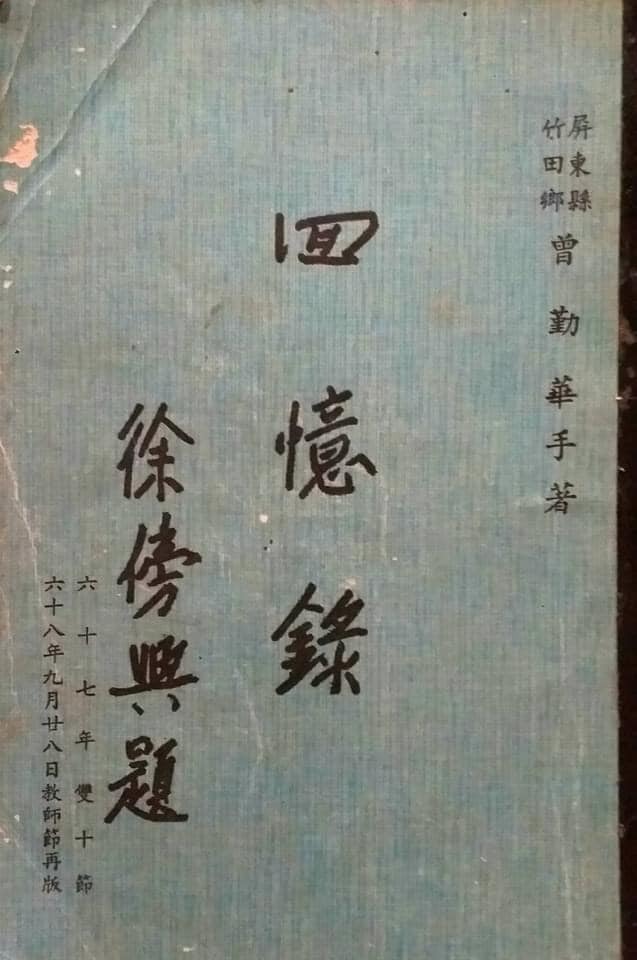 屏東縣
竹田鄉
曾勤華手著
回憶錄
徐傍興題
六十七年雙十節
六十八年九月廿八日教師節再版